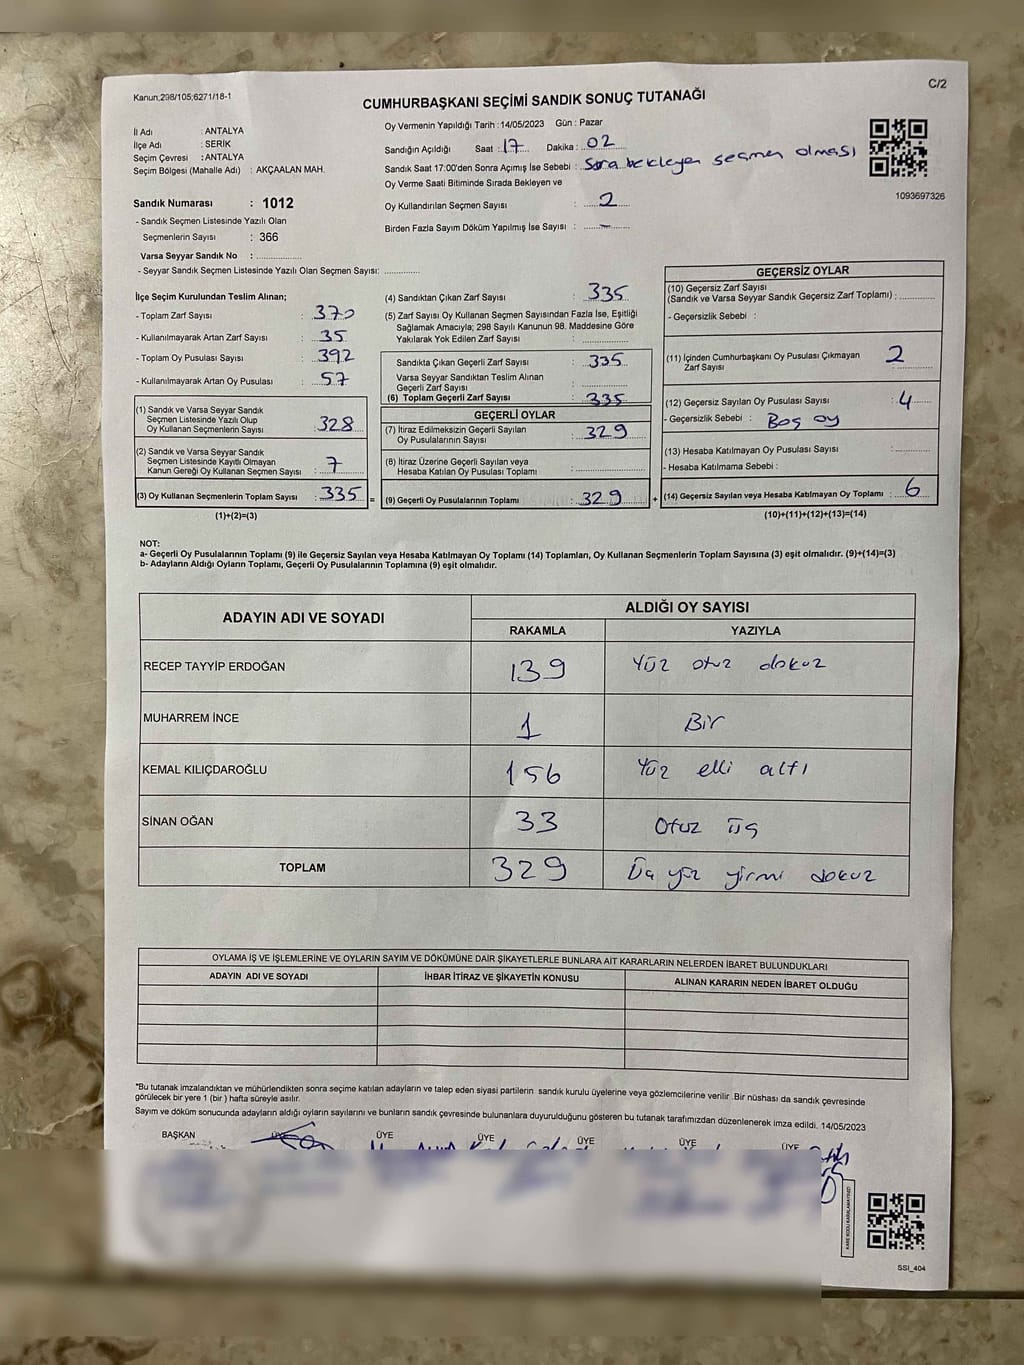 Kanun,298/105;6271/18-1
C/2
CUMHURBAŞKANI SEÇİMİ SANDIK SONUÇ TUTANAĞI
İl Adı : ANTALYA
İlçe Adı : SERİK
Seçim Çevresi : ANTALYA
Seçim Bölgesi (Mahalle Adı) : AKÇAALAN MAH.
Oy Vermenin Yapıldığı Tarih :14/05/2023 Gün : Pazar
Sandığın Açıldığı Saat : 17 Dakika : 02
Sandık Saat 17:00'den Sonra Açımış İse Sebebi : Sıra bekleyen seçmen olması
Oy Verme Saati Bitiminde Sırada Bekleyen ve
Oy Kullandırılan Seçmen Sayısı : 2
Birden Fazla Sayım Döküm Yapılmış İse Sayısı : —
1093697326
Sandık Numarası : 1012
- Sandık Seçmen Listesinde Yazılı Olan
Seçmenlerin Sayısı : 366
Varsa Seyyar Sandık No : ....................
- Seyyar Sandık Seçmen Listesinde Yazılı Olan Seçmen Sayısı: ...............
İlçe Seçim Kurulundan Teslim Alınan;
- Toplam Zarf Sayısı : 370
- Kullanılmayarak Artan Zarf Sayısı : 35
- Toplam Oy Pusulası Sayısı : 392
- Kullanılmayarak Artan Oy Pusulası : 57
(1) Sandık ve Varsa Seyyar Sandık
Seçmen Listesinde Yazılı Olup
Oy Kullanan Seçmenlerin Sayısı : 328
(2) Sandık ve Varsa Seyyar Sandık
Seçmen Listesinde Kayıtlı Olmayan
Kanun Gereği Oy Kullanan Seçmen Sayısı : 7
(3) Oy Kullanan Seçmenlerin Toplam Sayısı : 335 =
(1)+(2)=(3)
(4) Sandıktan Çıkan Zarf Sayısı : 335
(5) Zarf Sayısı Oy Kullanan Seçmen Sayısından Fazla İse, Eşitliği
Sağlamak Amacıyla; 298 Sayılı Kanunun 98. Maddesine Göre
Yakılarak Yok Edilen Zarf Sayısı : ....................
Sandıkta Çıkan Geçerli Zarf Sayısı : 335
Varsa Seyyar Sandıktan Teslim Alınan
Geçerli Zarf Sayısı : ....................
(6) Toplam Geçerli Zarf Sayısı : 335
GEÇERLİ OYLAR
(7) İtiraz Edilmeksizin Geçerli Sayılan
Oy Pusulalarının Sayısı : 329
(8) İtiraz Üzerine Geçerli Sayılan veya
Hesaba Katılan Oy Pusulası Toplamı : ....................
(9) Geçerli Oy Pusulalarının Toplamı : 329 +
GEÇERSİZ OYLAR
(10) Geçersiz Zarf Sayısı
(Sandık ve Varsa Seyyar Sandık Geçersiz Zarf Toplamı) : ..........
- Geçersizlik Sebebi :
(11) İçinden Cumhurbaşkanı Oy Pusulası Çıkmayan
Zarf Sayısı : 2
(12) Geçersiz Sayılan Oy Pusulası Sayısı : 4
- Geçersizlik Sebebi : Boş oy
(13) Hesaba Katılmayan Oy Pusulası Sayısı : ..........
- Hesaba Katılmama Sebebi :
(14) Geçersiz Sayılan veya Hesaba Katılmayan Oy Toplamı : 6
(10)+(11)+(12)+(13)=(14)
NOT:
a- Geçerli Oy Pusulalarının Toplamı (9) ile Geçersiz Sayılan veya Hesaba Katılmayan Oy Toplamı (14) Toplamları, Oy Kullanan Seçmenlerin Toplam Sayısına (3) eşit olmalıdır. (9)+(14)=(3)
b- Adayların Aldığı Oyların Toplamı, Geçerli Oy Pusulalarının Toplamına (9) eşit olmalıdır.
ADAYIN ADI VE SOYADI ALDIĞI OY SAYISI
RAKAMLA YAZIYLA
RECEP TAYYİP ERDOĞAN 139 Yüz otuz dokuz
MUHARREM İNCE 1 Bir
KEMAL KILIÇDAROĞLU 156 Yüz elli altı
SİNAN OĞAN 33 Otuz üç
TOPLAM 329 Üç yüz yirmi dokuz
OYLAMA İŞ VE İŞLEMLERİNE VE OYLARIN SAYIM VE DÖKÜMÜNE DAİR ŞİKAYETLERLE BUNLARA AİT KARARLARIN NELERDEN İBARET BULUNDUKLARI
ADAYIN ADI VE SOYADI İHBAR İTİRAZ VE ŞİKAYETİN KONUSU ALINAN KARARIN NEDEN İBARET OLDUĞU
*Bu tutanak imzalandıktan ve mühürlendikten sonra seçime katılan adayların ve talep eden siyasi partilerin sandık kurulu üyelerine veya gözlemcilerine verilir .Bir nüshası da sandık çevresinde
görülecek bir yere 1 (bir ) hafta süreyle asılır.
Sayım ve döküm sonucunda adayların aldığı oyların sayılarını ve bunların sandık çevresinde bulunanlara duyurulduğunu gösteren bu tutanak tarafımızdan düzenlenerek imza edildi. 14/05/2023
BAŞKAN ÜYE ÜYE ÜYE ÜYE ÜYE ÜYE
KARE KODU KARALAMAYINIZ!
SSI_404